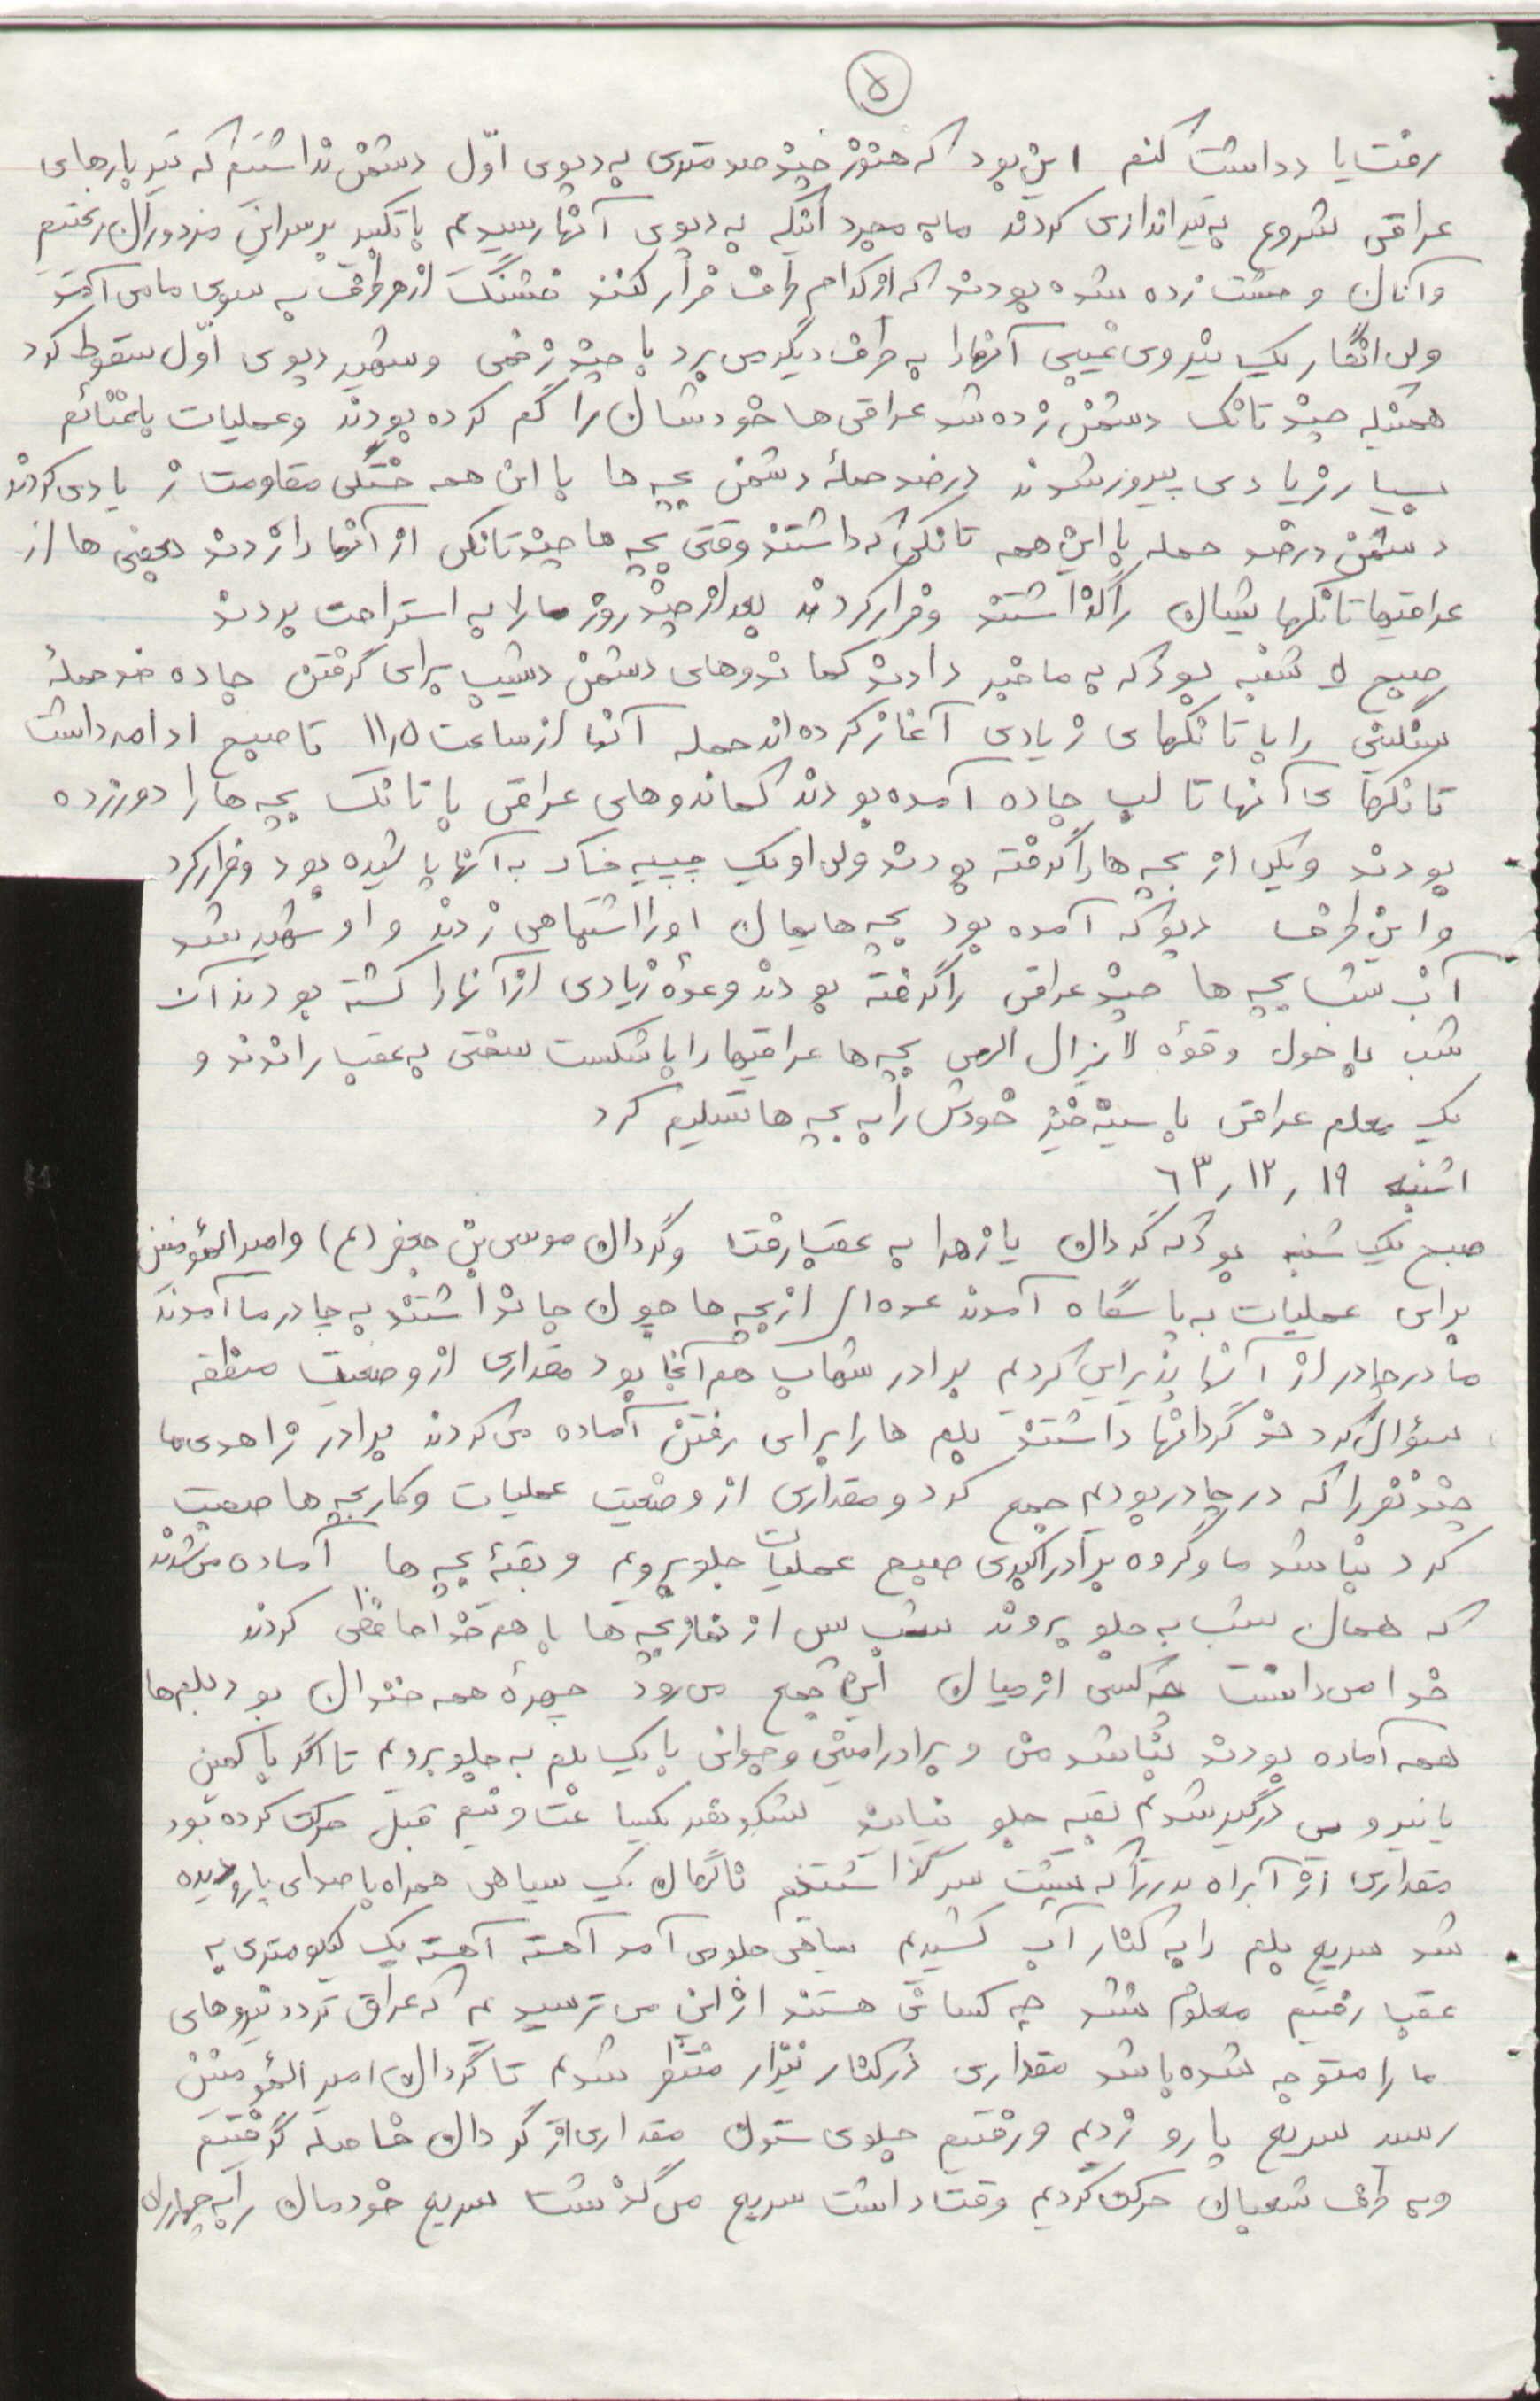 ۵
رفت یا دداشت کنم این بود که هنوز چند صد متری به دپوی اوّل دشمن نداشتیم که تیربارهای
عراقی شروع به تیراندازی کردند ما به مجرد آنکه به دپوی آنها رسیدیم با تکبیر بر سر این مزدوران ریختیم
و آنان وحشت زده شده بودند که از کدام طرف فرار کنند فشنگ از هر طرف به سوی ما می آمد
ولی انگار یک نیروی غیبی آنها را به طرف دیگر می برد با چند زخمی و شهید دپوی اوّل سقوط کرد
همینکه چند تانک دشمن زده شد عراقی ها خودشان را گم کرده بودند و عملیات با غنائم
بسیار زیادی پیروز شدند در ضد حملهٔ دشمن بچه ها با این همه خستگی مقاومت زیادی کردند
دشمن در ضد حمله با این همه تانکی که داشتند وقتی بچه ها چند تانکی از آنها را زدند بعضی ها از
عراقیها تانکهایشان را گذاشتند و فرار کردند بعد از چند روز ما را به استراحت بردند
صبح ۵ شنبه بود که به ما خبر دادند کماندوهای دشمن دیشب برای گرفتن جاده ضد حملهٔ
سنگینی را با تانکهای زیادی آغاز کرده اند حمله آنها از ساعت ۱۱٫۵ تا صبح ادامه داشت
تانکهای آنها تا لب جاده آمده بودند کماندوهای عراقی با تانک بچه ها را دور زده
بودند و یکی از بچه ها را گرفته بودند ولی او یک جیبیه خاک به آنها پاشیده بود و فرار کرد
و این طرف دپو که آمده بود بچه هایمان او را اشتباهی زدند و او شهید شد
آن شب بچه ها چند عراقی را گرفته بودند و عدهٔ زیادی از آنها را کشته بودند آن
شب با حول و قوهٔ لایزال الهی بچه ها عراقیها را با شکست سختی به عقب راندند و
یک معلم عراقی با سینه خیز خودش را به بچه ها تسلیم کرد
۱شنبه ۱۹ ٫ ۱۲ ٫ ٦۳
صبح یک شنبه بود که گردان یا زهرا به عقب رفت و گردان موسی بن جعفر (ع) و امیرالمؤمنین
برای عملیات به پاسگاه آمدند عده ای از بچه ها چون جا نداشتند به چادر ما آمدند
ما در چادر از آنها پذیرایی کردیم برادر شهاب هم آنجا بود مقداری از وضعیت منطقه
سؤال کرد گردانها داشتند بلم ها را برای رفتن آماده می کردند برادر زاهدی ما
چند نفر را که در چادر بودیم جمع کرد و مقداری از وضعیت عملیات و کار بچه ها صحبت
کرد بنا شد ما و گروه برادر اکبری صبح عملیات جلو برویم و بقیهٔ بچه ها آماده می شدند
که همان شب به جلو بروند شب پس از نماز بچه ها با هم خدا حافظی کردند
خدا می دانست چه کسی از میان این جمع می رود چهرهٔ همه خندان بود بلم ها
همه آماده بودند بنا شد من و برادر امینی و جوانی با یک بلم به جلو برویم تا اگر با کمین
یا نیرویی درگیر شدیم بقیه جلو نیایند لشکر نیم قبل حرکت کرده بود
مقداری از آبراه را که پشت سر گذاشتیم ناگهان یک سیاهی همراه با صدای پارو دیده
شد سریع بلم را به کنار آب کشیدیم سیاهی جلو می آمد آهسته آهسته یک کیلومتری به
عقب رفتیم معلوم نشد چه کسانی هستند از این می ترسیدیم که عراق تردد نیروهای
ما را متوجه شده باشد مقداری در کنار نیزار منتظر شدیم تا گردان امیر المؤمنین
رسید سریع پارو زدیم و رفتیم جلوی ستون مقداری از گردان فاصله گرفتیم
و به طرف شعبان حرکت کردیم وقت داشت سریع می گذشت سریع خودمان را به چهارراه